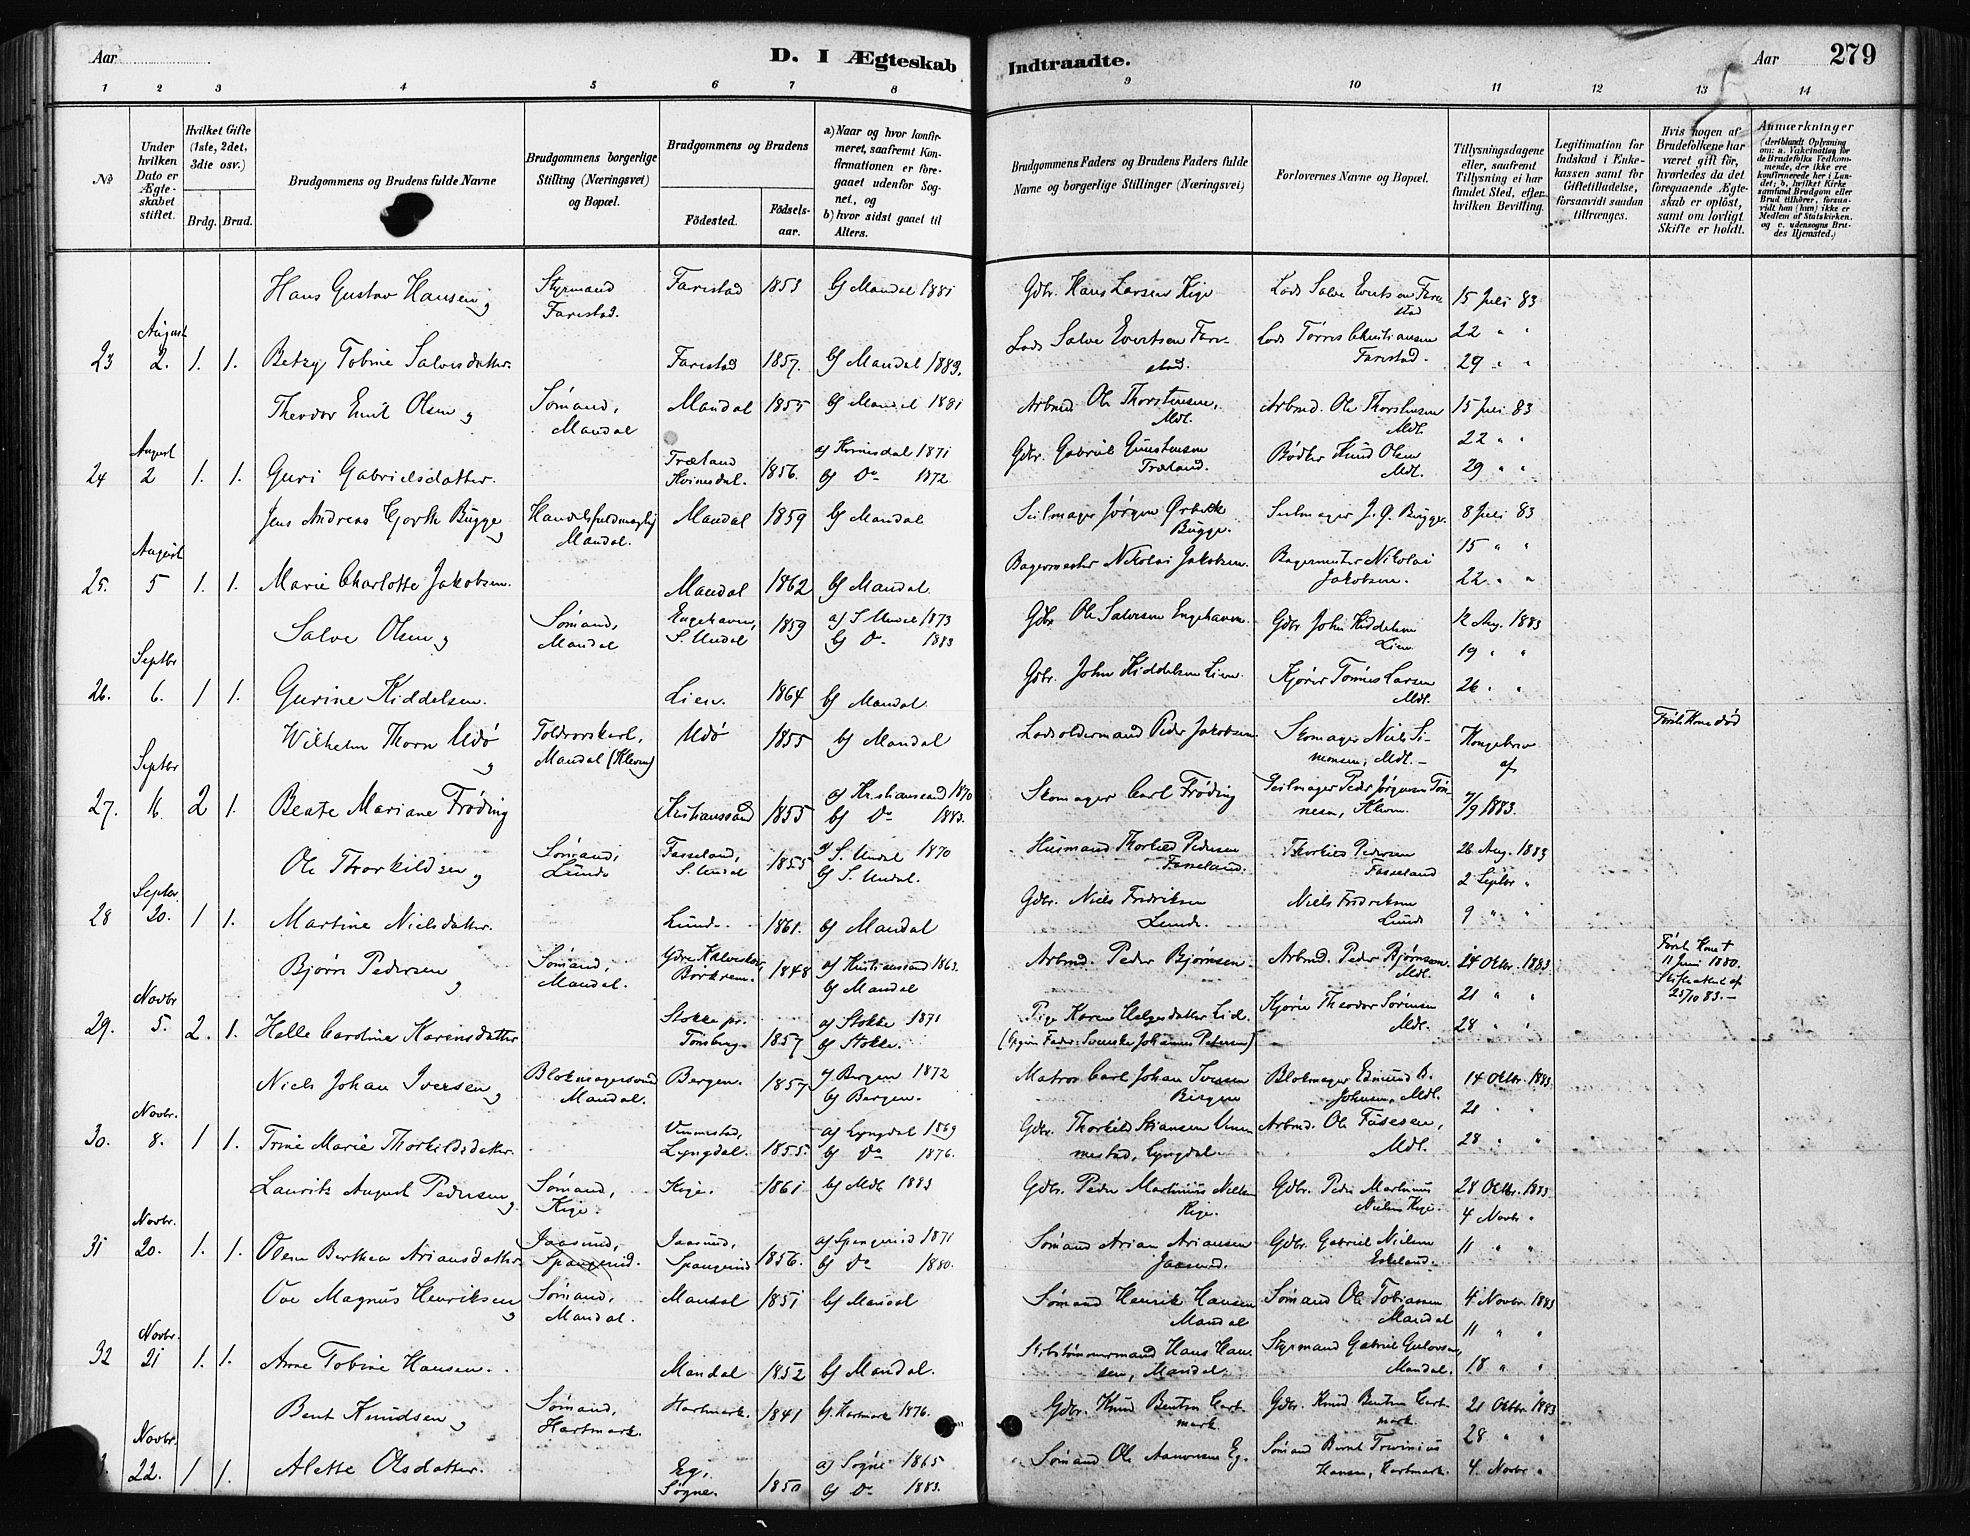 Aar
D. I Ægteskab
Indtraadte.
Aar
279
1 2 3 4 5 6 7 8 9 10 11 12 13 14
No
Under hvilken Dato er Ægteskabet stiftet.
Hvilket Gifte (1ste, 2det, 3die osv.)
Brdg. Brud.
Brudgommens og Brudens fulde Navne
Brudgommens borgerlige Stilling (Næringsvei) og Bopæl.
Brudgommens og Brudens
Fødested.
Fødselsaar.
a) Naar og hvor konfirmeret, saafremt Konfirmationen er foregaaet udenfor Sognet, og
b) hvor sidst gaaet til Alters.
Brudgommens Faders og Brudens Faders fulde Navne og borgerlige Stillinger (Næringsvei)
Forlovernes Navne og Bopæl.
Tillysningsdagene eller, saafremt Tillysning ei har fundet Sted, efter hvilken Bevilling.
Legitimation for Indskud i Enkekassen samt for Giftetilladelse, forsaavidt saadan tiltrænges.
Hvis nogen af Brudefolkene har været gift før, hvorledes da det foregaaende Ægteskab er opløst, samt om lovligt Skifte er holdt.
Anmærkninger
(deriblandt Oplysning om: a. Vakcination for de Brudefolks Vedkommende, der ikke ere konfirmerede her i Landet; b, hvilket Kirkesamfund Brudgom eller Brud tilhører, forsaavidt han (hun) ikke er Medlem af Statskirken, og c. udensogns Brudes Hjemsted.)
Hans Gustav Hansen, Styrmand Farestad. Farestad 1853 b) Mandal 1881 Gdbr. Hans Larsen Kige Lods Salve Evertsen Farestad 15 Juli 83
22 " "
23 August 2. 1. 1. Betzy Tobine Salvesdatter. Farestad 1857. b) Mandal 1883. Lods Salve Evertsen Farestad. Lods Tørres Christiansen Farestad. 29 " "
Theodor Emil Olsen, Sømand, Mandal Mandal 1855 b) Mandal 1881 Arbmd Ole Thorstensen, Mdl. Arbmd. Ole Thorstensen Mdl. 15 Juli 83
22 " "
24 August 2 1. 1. Guri Gabrielsdatter. Træland Kvinesdal. 1856. a) Kvinesdal 1871 b) Do 1872. Gdbr. Gabriel Træland. Bødker Knud Olsen Mdl. 29 " "
Jens Andreas Bugge, Mandal. Mandal 1859 b) Mandal Seilmager Jørgen Bugge. Seilmager J. Ø. Bugge. 8 Juli 83
15 " "
25. August 5 1. 1. Marie Charlotte Jakobsen. Mandal 1862 b) Mandal. Bagermester Nikolai Jakobsen. Bagermester Nikolai Jakobsen. 22 " "
Salve Olsen, Sømand, Mandal Engehaven, S. Undal 1859 a) S. Undal 1873 b) Do 1883 Gdbr Ole Salvesen Engehaven. Gdbr John Kiddelsen Lien. 12 Aug. 1883
19 " "
26. Septbr 6. 1 1. Gurine Kiddelsen. Lien. 1864 b) Mandal. Gdbr. John Kiddelsen Lien. Kjører Tønnes Larsen Mdl. 26 " "
Wilhelm Thorn Udø, Toldrorskarl, Mandal (Kleven) Udø 1855 b) Mandal Lodsoldermand Peder Jakobsen Skomager Niels Simonsen, Mdl. Kongebrev af 7/9 1883. Første Kone død
27. Septbr 2 1. Beate Mariane Frøding Kristianssand 1855 a) Kristianssand 1870 b) Do 1883. Skomager Carl Frøding Seilmager Peder Jørgensen Tønnesen, Kleven.
Ole Thorkildsen, Sømand, Lunde Fasseland, S. Undal 1855 a) S. Undal 1870 b) S. Undal. Husmand Thorkild Pedersen Fasseland. Thorkild Pedersen Fasseland 26 Aug. 1883
2 Septbr "
28 Septbr. 20. 1 1. Martine Nielsdatter. Lunde. 1861. b) Mandal Gdbr. Niels Fredriksen Lunde. Niels Fredriksen Lunde 9 " "
Bjørn Pedersen, Sømand, Mandal. 1848 a) Kristianssand 1863. b) Mandal Arbmd. Peder Bjørnsen. Arbmd. Peder Bjørnsen. Mdl. 14 Oktbr. 1883 Første Kone † 11 Juni 1880. Skifteattest af 25/10 83.
21 " "
29. Novbr 5. 2. 1. Helle Caroline Karensdatter Stokke pr. Tønsberg. 1857 a) Stokke 1871 b) Stokke. Pige Karen Helgesdatter Lid. (Opgiven Fader: Svenske Johannes Petersen) Kjører Theodor Sørensen Mdl. 28 " "
Niels Johan Iversen, Mandal. Bergen. 1857 a) Bergen 1872 b) Bergen. Matros Carl Johan Iversen Bergen Blokmager Edmund B. Johnsen, Mdl. 14 Oktbr. 1883
21 " "
30. Novbr. 8. 1 1. Trine Marie Thorkildsdatter. Vemmestad, Lyngdal. 1855. a) Lyngdal 1869 b) Do 1876. Gdbr. Thorkild Stiansen Vemmestad, Lyngdal. Arbmd. Ole Mdl. 28 " "
Laurits August Pedersen, Sømand, Kige. Kige. 1861 b) Mdl 1883 Gdbr. Peder Martinius Nielsen Kige. Gdbr. Peder Martinius Nielsen Kige. 28 Oktbr. 1883
4 Novbr. "
31 Novbr. 20. 1. 1. Olene Berthea Ariansdatter Jaasund, Spangereid. Jaasund, Spangereid 1856. a) Spangereid 1871 b) Do 1880. Sømand Arian Ariansen Jaasund. Gdbr. Gabriel Nielsen Eskeland. 11 " "
Ove Magnus Henriksen, Sømand, Mandal. Mandal 1851 b) Mandal Sømand Henrik Hansen Mandal Sømand Ole Tobiassen, Mandal 4. Novbr. 1883
11 " "
32 Novbr. 21 1. 1. Anne Tobine Hansen. Mandal 1852 b) Mandal. Skibstømmermand Hans Hansen, Mandal. Styrmand Gabriel Gulovsen, Mandal. 18 " "
Bent Knudsen, Sømand, Hartmark. Hartmark. 1841 b) Hartmark 1876. Gdbr. Knud Bentsen Hartmark Gdbr. Knud Bentsen Hartmark. 21 Oktbr. 1883
28 " "
Novbr. 22. 1 1. Alette Olsdatter. Eg, Søgne. 1850 a) Søgne 1865 b) Do 1883. Sømand Ole Aanonsen Eg. Sømand Bernt Hansen, Hartmark. 4. Novbr "